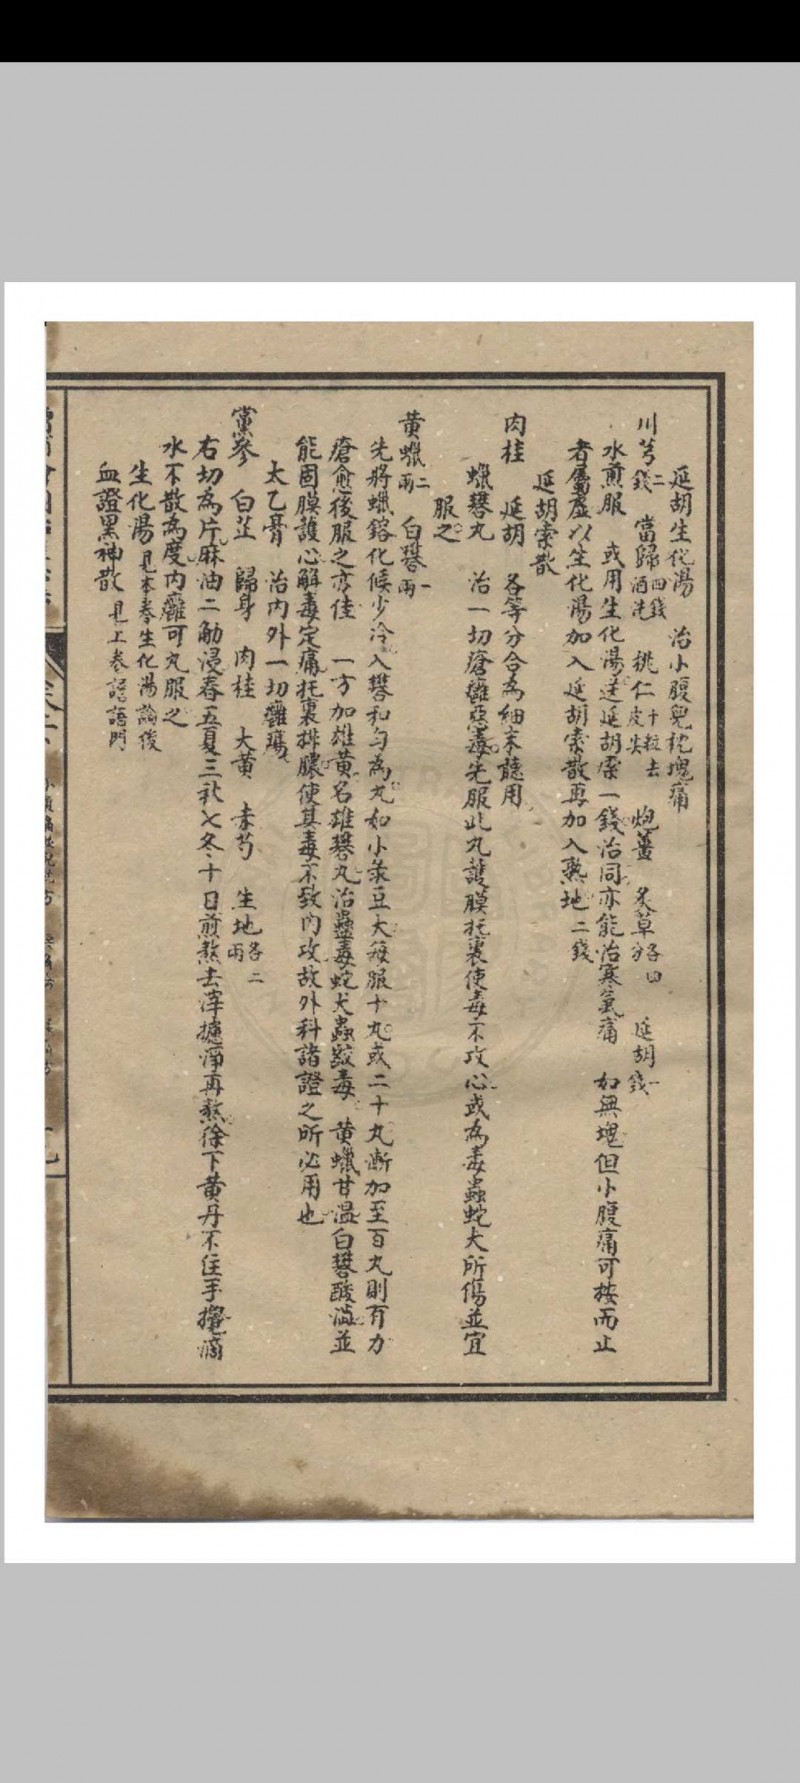 延胡生化湯　治小腹兒枕塊痛
川芎二錢　當歸四錢酒洗　桃仁十粒去皮尖　炮薑　炙草各四分　延胡一錢
水煎服　或用生化湯送延胡索一錢治同亦能治寒氣痛　如無塊但小腹痛可按而止
者屬虛以生化湯加入延胡索散再加入熟地二錢
延胡索散
肉桂　延胡　各等分合為細末聽用
蠟礬丸　治一切瘡癰惡毒先服此丸護膜托裏使毒不攻心或為毒蟲蛇犬所傷並宜
服之
黃蠟二兩　白礬一兩
先將蠟鎔化候少冷入礬和勻為丸如小菉豆大每服十丸或二十丸漸加至百丸則有力
瘡愈後服之亦佳　一方加雄黃名雄礬丸治蠱毒蛇犬蟲齩毒　黃蠟甘溫白礬酸澁並
能固膜護心解毒定痛托裏排膿使其毒不致內攻故外科諸證之所必用也
太乙膏　治內外一切癰瘍
黨參　白芷　歸身　肉桂　大黃　赤芍　生地各二兩
右切為片麻油二觔浸春五夏三秋七冬十日煎熬去滓濾淨再熬徐下黃丹不住手攪滴
水不散為度內癰可丸服之
生化湯見本卷生化湯論後
血證黑神散　見上卷譫語門